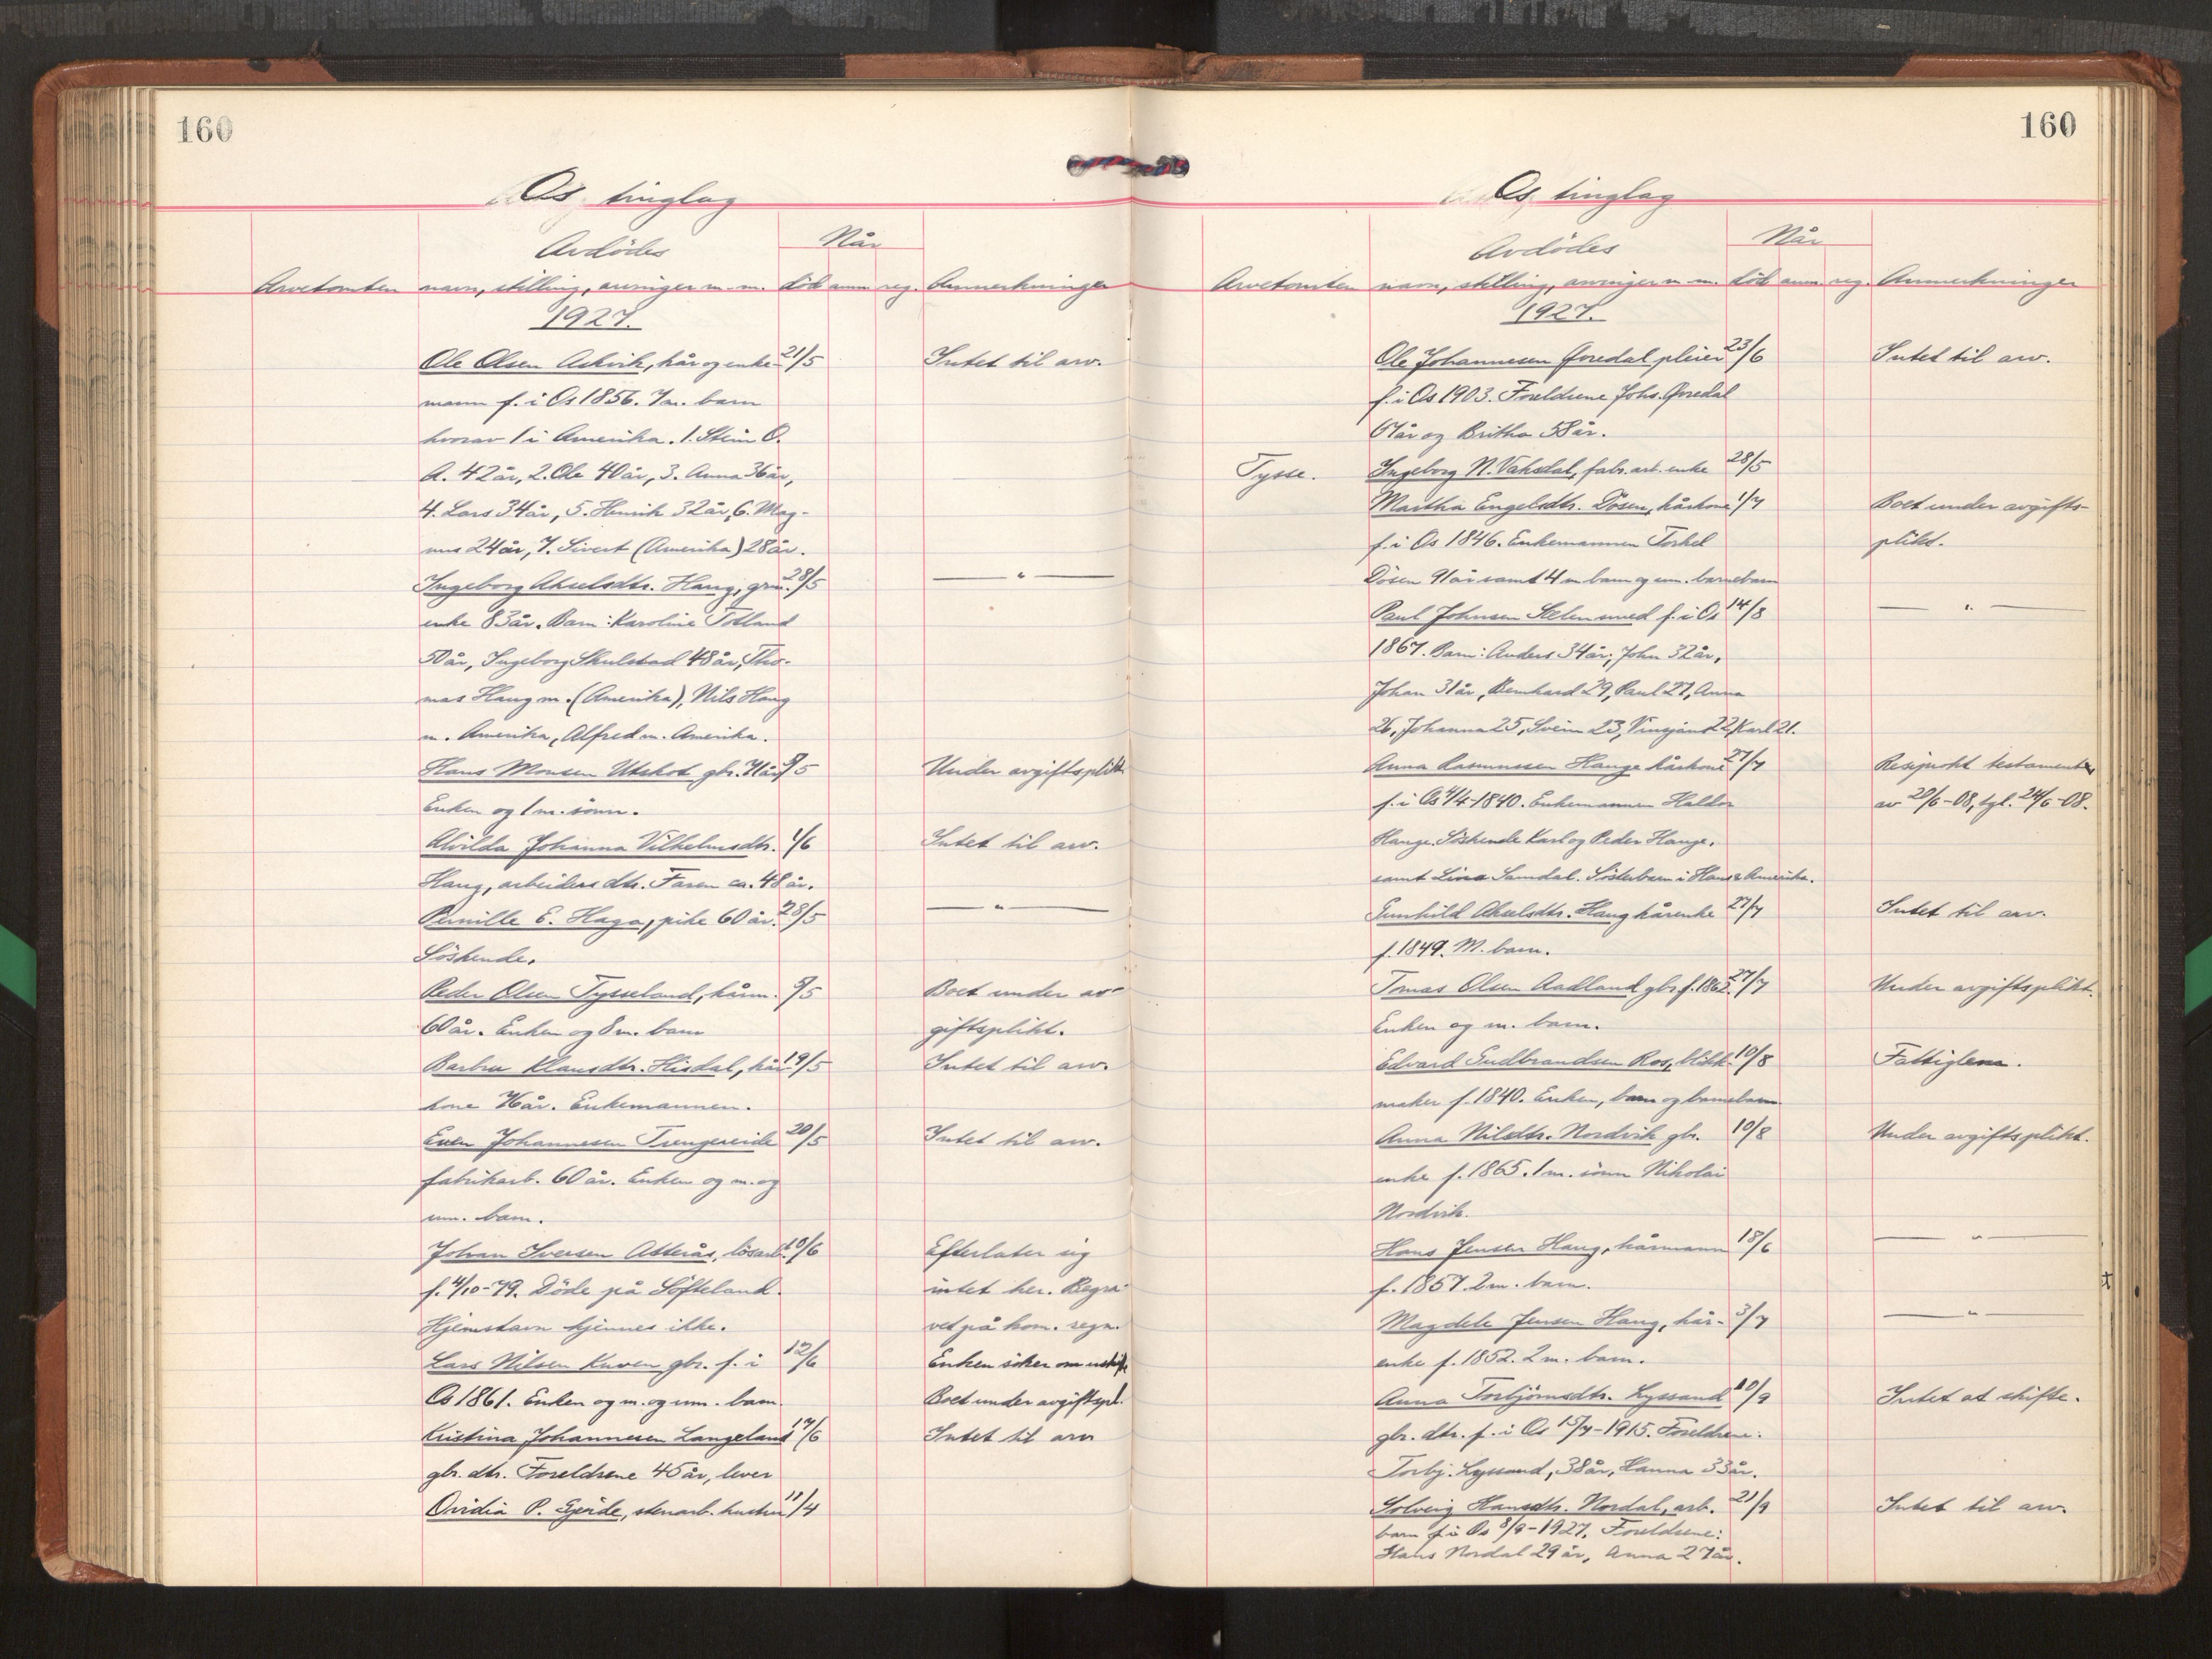 160
Os tinglag
Avdödes
Når
Arvetomten navn, stilling, arvinger m.m. död anm. reg. Anmerkninger
1927.
Ole Olsen Askvik, kår og enke- 21/5 Intet til arv.
mann f. i Os 1856. 7 m. barn
hvorav 1 i Amerika. 1. Stein O.
A. 42 år, 2. Ole 40 år, 3. Anna 36 år,
4. Lars 34 år, 5. Henrik 32 år, 6. Mag-
nus 24 år, 7. Sivert (Amerika) 28 år.
Ingeborg Akselsdtr. Haug, grm. 28/5 — " —
enke 83 år. Barn: Karoline Totland
50 år, Ingeborg Skulstad 48 år, Tho-
mas Haug m. (Amerika), Nils Haug
m. Amerika, Alfred m. Amerika.
Hans Monsen Utskot gbr. 71 år 9/5 Under avgiftsplikt
Enken og 1 m. sönn.
Alvilda Johanna Vilhelmsdtr. 1/6 Intet til arv.
Haug, arbeiders dtr. Faren ca. 48 år.
Pernille E. Haga, pike 60 år. 28/5 — " —
Söskende.
Peder Olsen Tysseland, kårm. 9/5 Boet under av-
60 år. Enken og 8 m. barn giftsplikt.
Barbra Klausdtr. Hisdal, kår- 19/5 Intet til arv.
kone 76 år. Enkemannen.
Even Johannesen Tungereide 20/5 Intet til arv.
fabrikarb. 60 år. Enken og m. og
um. barn.
Johan Iversen Atterås, lösarb. 10/6 Efterlater sig
f. 4/10-79. Döde på Söfteland. intet her. Begra-
Hjemstavn kjennes ikke. vet på kom. regn.
Lars Nilsen Kuven gbr. f. i 12/6 Enken söker om uskifte
Os 1861. Enken og m. og um. barn. Boet under avgiftspl.
Kristina Johannesen Langeland 17/6 Intet til arv
gbr. dtr. Foreldrene 45 år, lever
Ovidia P. Gjerde, stenarb. hustru 11/4
160
Os tinglag
Avdödes
Når
Arvetomten navn, stilling, arvinger m. m. död anm. reg. Anmerkninger
1927.
Ole Johannesen Övredal pleier 23/6 Intet til arv.
f. i Os 1903. Foreldrene Johs. Övredal
67 år og Britha 58 år.
Tysse. Ingeborg N. Vaksdal, fabr. arb. enke 28/5
Martha Engelsdtr. Dösen, kårkone 1/7 Boet under avgifts-
f. i Os 1846. Enkemannen Torkel plikt.
Dösen 91 år samt 4 m barn og um. barnebarn
Paul Johnsen Sælen smed f. i Os 14/8 — " —
1867. Barn: Anders 34 år, John 32 år,
Johan 31 år, Bernhard 29, Paul 27, Anna
26, Johanna 25, Svein 23, 22, Karl 21.
Anna Rasmussen Hauge kårkone 27/7 Resiprokt testamente
f. i Os 4/4-1840. Enkemannen Haldor av 20/6-08, tgl. 24/6-08.
Hauge. Söskende Karl og Peder Hauge,
samt Lina Samdal. Sösterbarn i Haus & Amerika.
Gunhild Akselsdtr. Haug kårenke 27/7 Intet til arv.
f. 1849. M. barn.
Tomas Olsen Aadland gbr f. 1862. 27/7 Under avgiftsplikt.
Enken og m. barn.
Edvard Gudbrandsen Ros, blikk- 10/8 Fattiglem.
maker f. 1840. Enken, barn og barnebarn
Anna Nilsdtr. Nordvik gbr. 10/8 Under avgiftsplikt.
enke f. 1865. 1 m. sönn Nikolai
Nordvik.
Hans Jensen Haug, kårmann 18/6 — " —
f. 1857. 2 m. barn.
Magdele Jensen Haug, kår- 3/7 — " —
enke f. 1852. 2 m. barn.
Anna Torbjörnsdtr. Lyssand 10/9 Intet at skifte.
gbr. dtr. f. i Os 15/7-1915. Foreldrene:
Torbj. Lyssand, 38 år, Hanna 33 år.
Solveig Hansdtr. Nordal, arb. 21/9 Intet til arv.
barn f. i Os 8/9-1927. Foreldrene:
Hans Nordal 29 år, Anna 27 år.